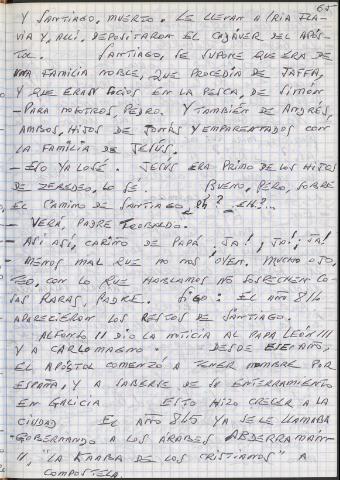 65
Y SANTIAGO, MUERTO. LE LLEVAN A IRIA FLA-
VIA Y, ALLÍ, DEPOSITARON EL CADÁVER DEL APÓS-
TOL. SANTIAGO, SE SUPONE QUE ERA DE
UNA FAMILIA NOBLE, QUE PROCEDÍA DE JAFFA,
Y QUE ERAN SOCIOS EN LA PESCA, DE SIMÓN
-PARA NOSOTROS, PEDRO. Y TAMBIÉN DE ANDRÉS,
AMBOS, HIJOS DE JONÁS Y EMPARENTADOS CON
LA FAMILIA DE JESÚS.
- ESO YA LO SÉ. JESÚS ERA PRIMO DE LOS HIJOS
DE ZEBEDEO, LO SÉ. BUENO, PERO, SOBRE
EL CAMINO DE SANTIAGO, EH? EH?...
- VERÁ, PADRE TEOBALDO.
- ASÍ ASÍ, CARIÑO DE PAPÁ. JA!, JA!, JA!
- MENOS MAL QUE NO NOS OYEN. MUCHO OJO,
TEO, CON LO QUE HABLAMOS NO SOSPECHEN CO-
SAS RARAS, PADRE. SIGO: EL AÑO 816
APARECIERON LOS RESTOS DE SANTIAGO.
ALFONSO II DIO LA NOTICIA AL PAPA LEÓN III
Y A CARLOMAGNO. DESDE ESE AÑO,
EL APÓSTOL COMENZÓ A TENER NOMBRE POR
ESPAÑA, Y A SABERSE DE SU ENTERRAMIENTO
EN GALICIA ESTO HIZO CRECER A LA
CIUDAD EL AÑO 845 YA SE LE LLAMABA
-GOBERNANDO A LOS ÁRABES ABDERRAMÁN
II, "LA KAABA DE LOS CRISTIANOS" A
COMPOSTELA.